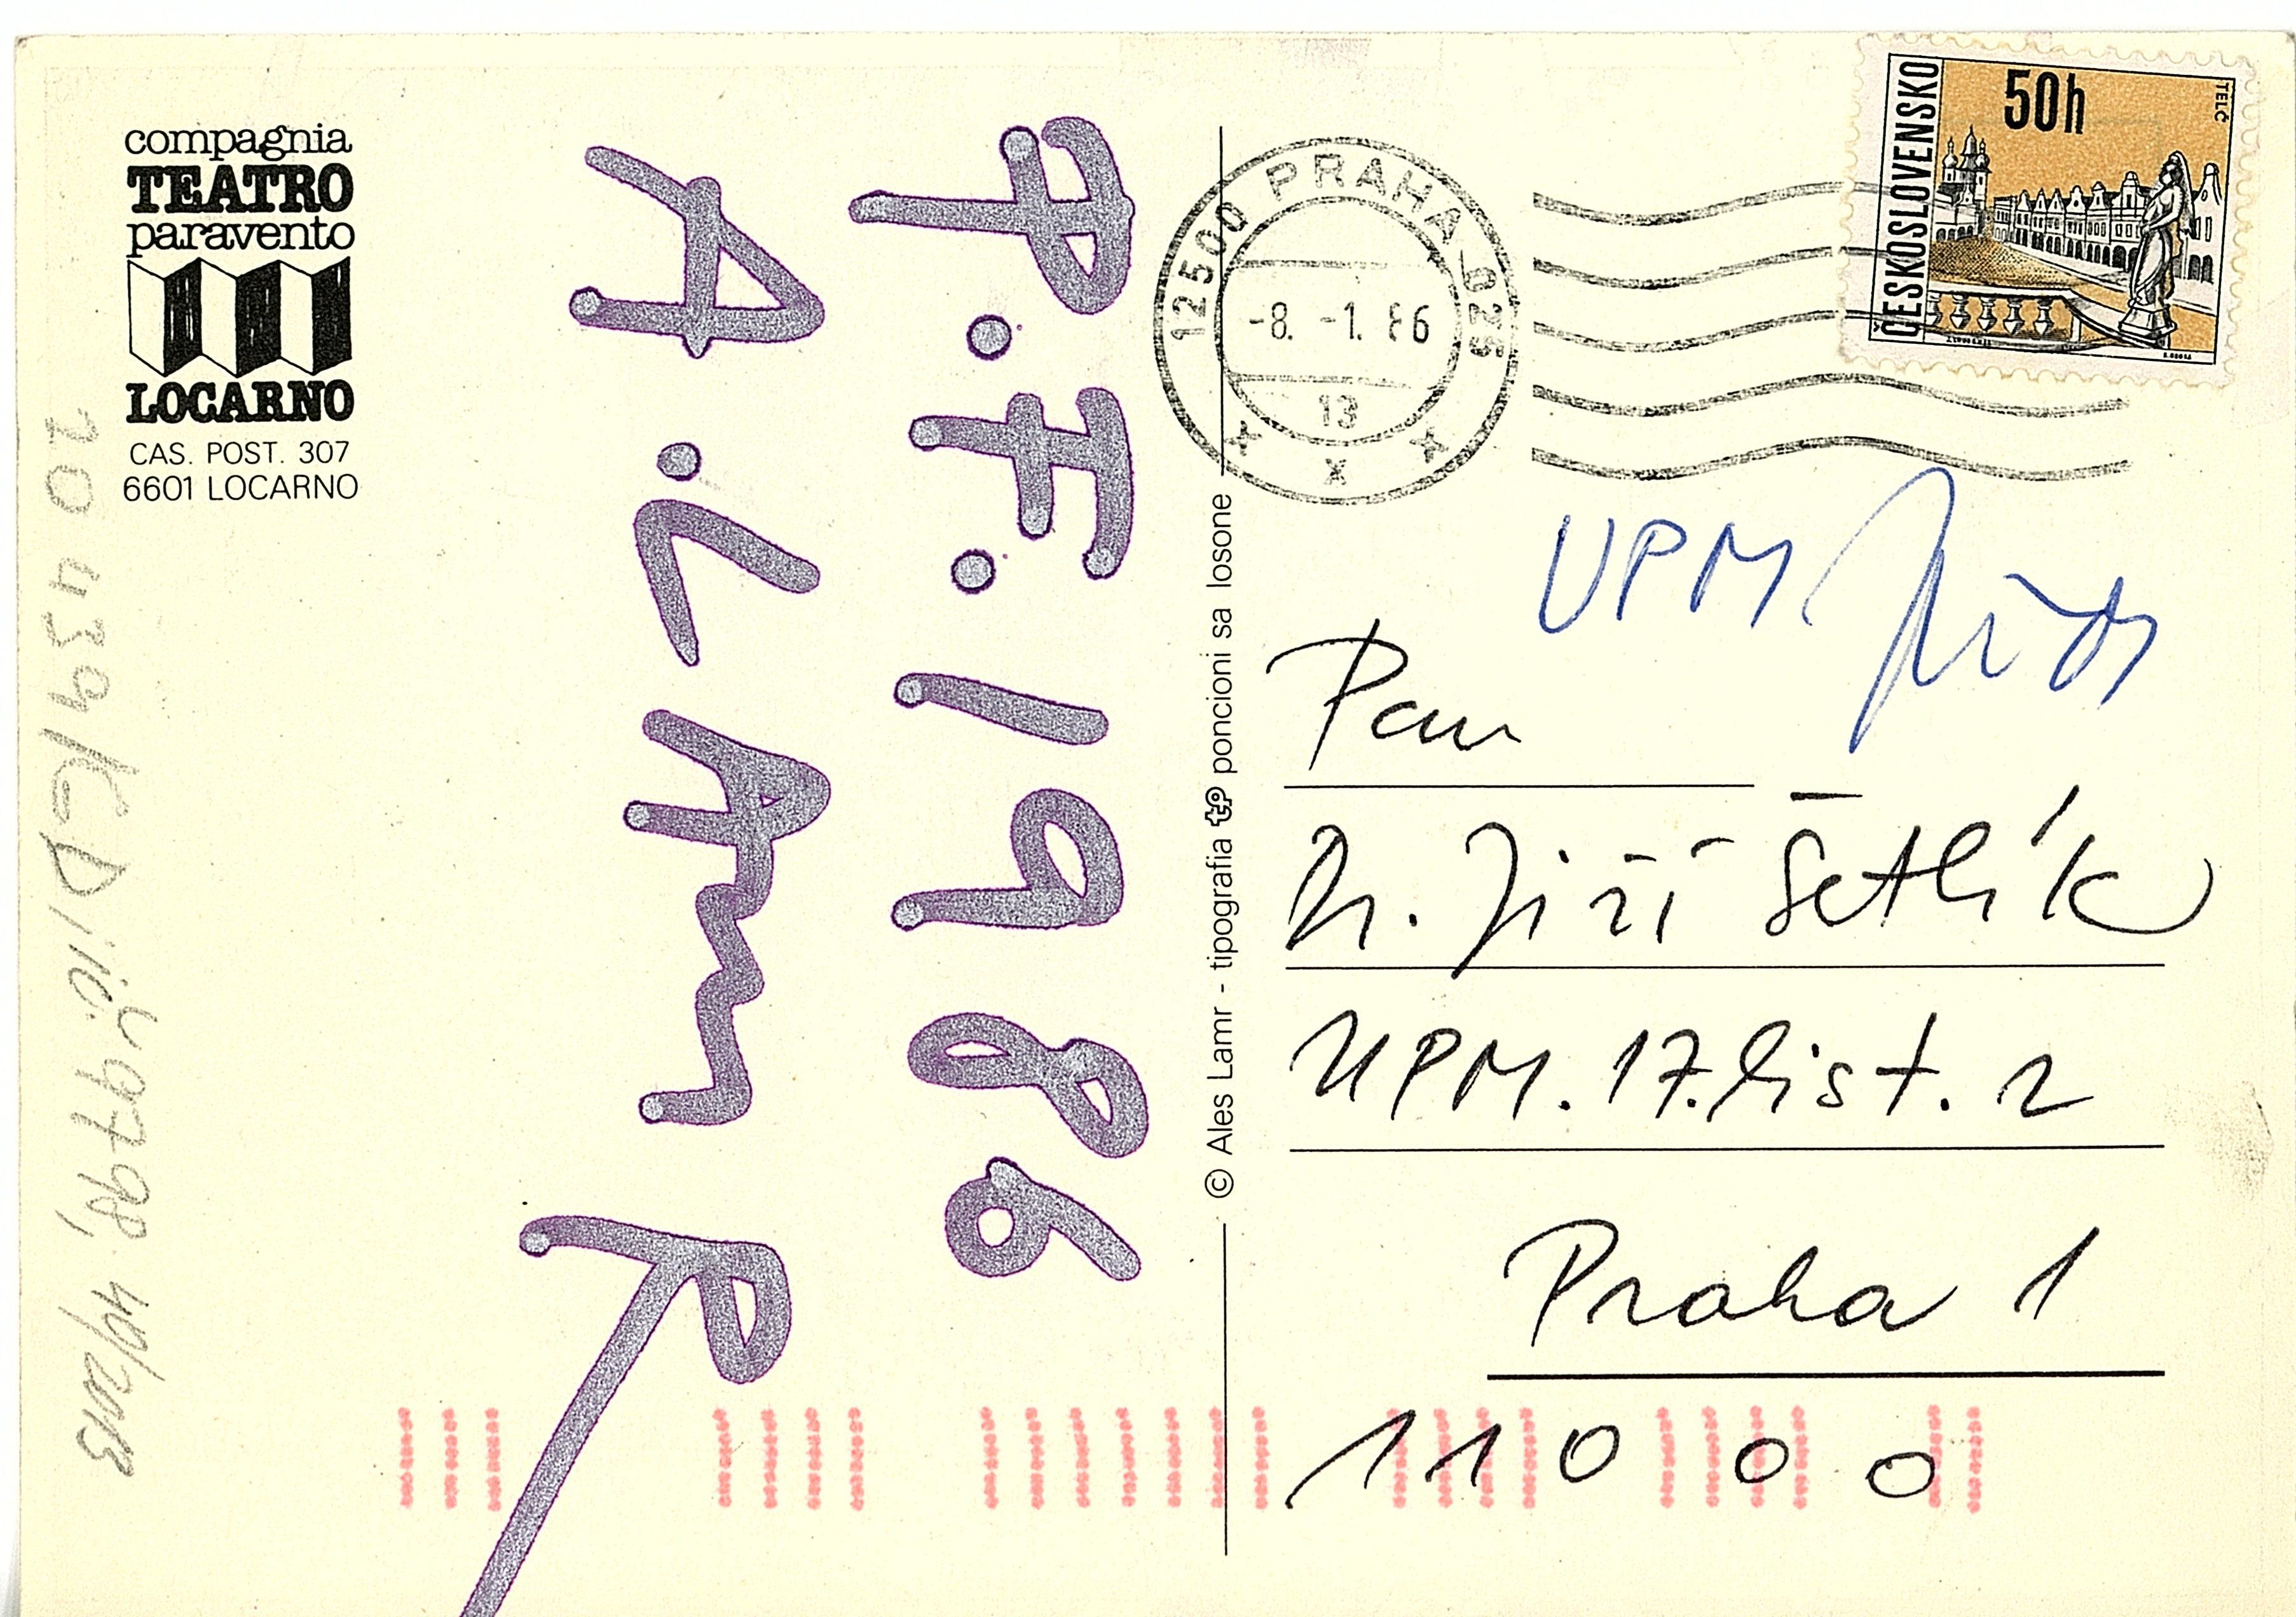 compagnia
TEATRO
paravento
LOCARNO
CAS. POST. 307
6601 LOCARNO
P.F. 1986
A. LAmR
© Ales Lamr - tipografia tp poncioni sa losone
12500 PRAHA 025
-8. -1. 86
13
ČESKOSLOVENSKO
50h
TELČ
UPM
Pan
Dr. Jiří Šetlík
UPM. 17. list. 2
Praha 1
110 00